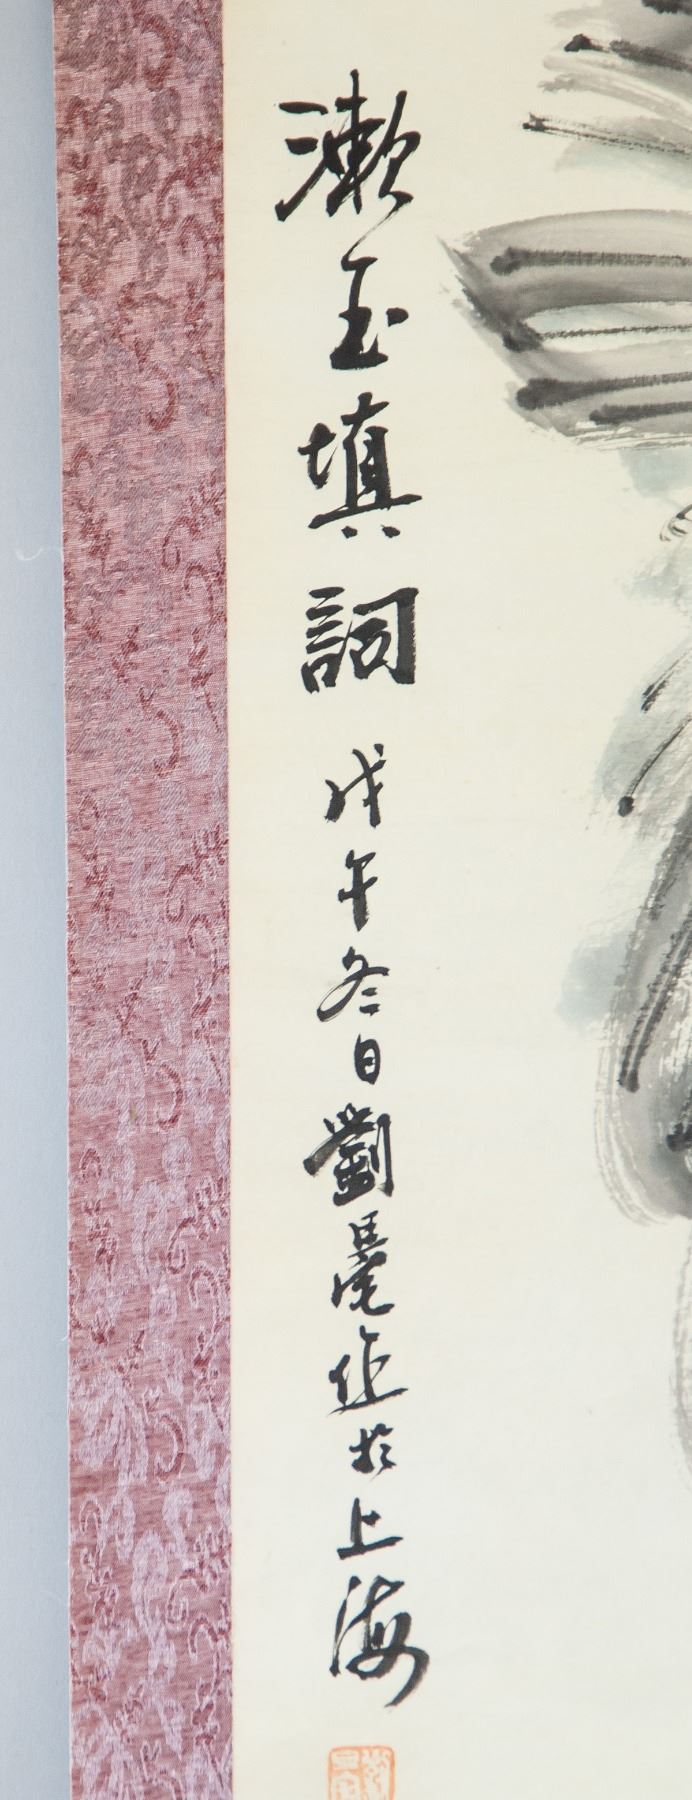 漱玉填詞 戊午冬日劉旦宅作於上海